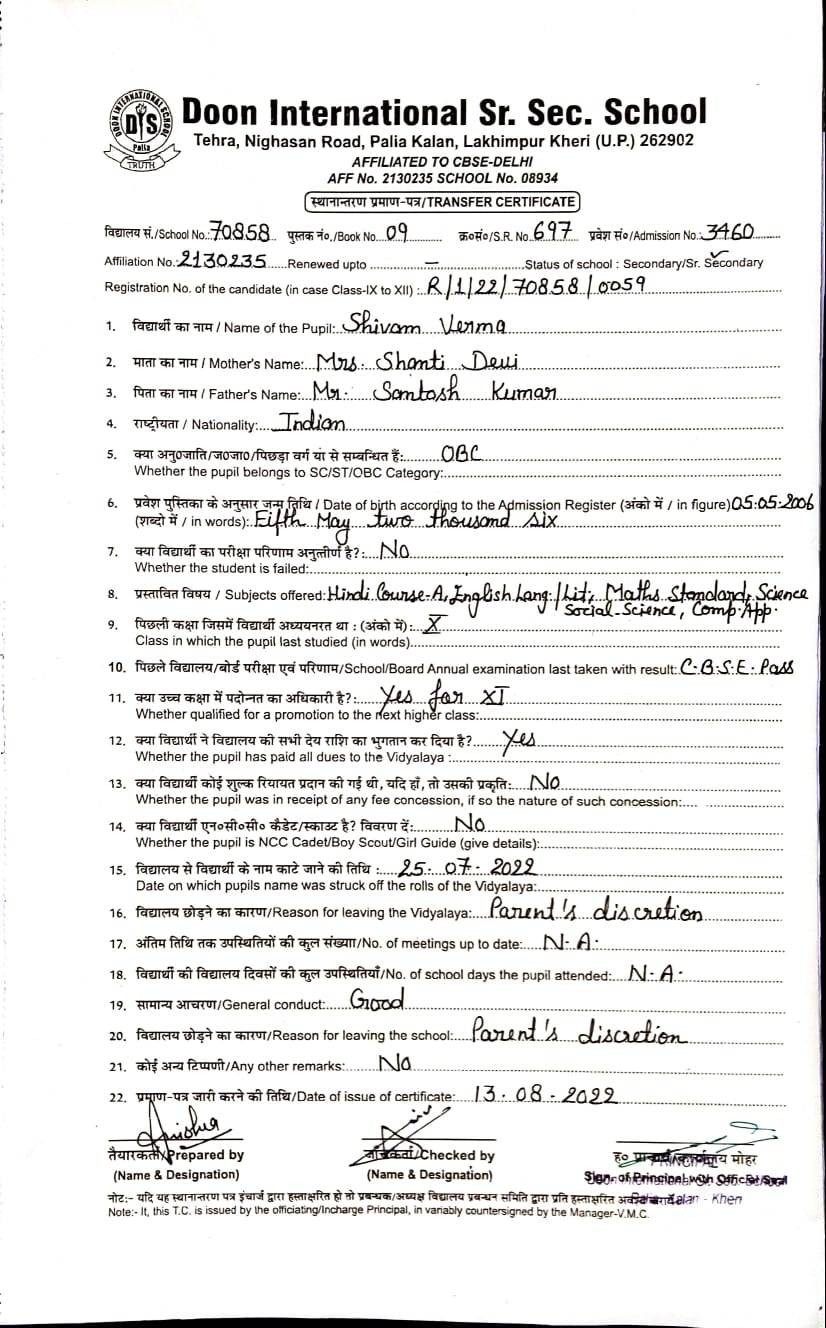 DOON INTERNATIONAL SCHOOL
DIS
Palia
TRUTH
Doon International Sr. Sec. School
Tehra, Nighasan Road, Palia Kalan, Lakhimpur Kheri (U.P.) 262902
AFFILIATED TO CBSE-DELHI
AFF No. 2130235 SCHOOL No. 08934
स्थानान्तरण प्रमाण-पत्र/TRANSFER CERTIFICATE
विद्यालय सं./School No.: 70858 पुस्तक नं०./Book No. 09 क्र०सं०/S.R. No. 697 प्रवेश सं०/Admission No.: 3460
Affiliation No.: 2130235 Renewed upto — Status of school : Secondary/Sr. Secondary
Registration No. of the candidate (in case Class-IX to XII) : R/1/22/70858/0059
1. विद्यार्थी का नाम / Name of the Pupil: Shivam Verma
2. माता का नाम / Mother's Name: Mrs. Shanti Devi
3. पिता का नाम / Father's Name: Mr. Santosh Kumar
4. राष्ट्रीयता / Nationality: Indian
5. क्या अनु०जाति/ज०जा०/पिछड़ा वर्ग यां से सम्बन्धित हैं: OBC
Whether the pupil belongs to SC/ST/OBC Category:
6. प्रवेश पुस्तिका के अनुसार जन्म तिथि / Date of birth according to the Admission Register (अंको में / in figure) 05.05.2006
(शब्दो में / in words): Fifth May two thousand six
7. क्या विद्यार्थी का परीक्षा परिणाम अनुत्तीर्ण है?: No
Whether the student is failed:
8. प्रस्तावित विषय / Subjects offered: Hindi Course-A, English Lang./Lit, Maths Standard, Science
Social-Science, Comp. App.
9. पिछली कक्षा जिसमें विद्यार्थी अध्ययनरत था : (अंको में): X
Class in which the pupil last studied (in words)
10. पिछले विद्यालय/बोर्ड परीक्षा एवं परिणाम/School/Board Annual examination last taken with result: C.B.S.E. Pass
11. क्या उच्च कक्षा में पदोन्नत का अधिकारी है?: Yes for XI
Whether qualified for a promotion to the next higher class:
12. क्या विद्यार्थी ने विद्यालय की सभी देय राशि का भुगतान कर दिया है? Yes
Whether the pupil has paid all dues to the Vidyalaya :
13. क्या विद्यार्थी कोई शुल्क रियायत प्रदान की गई थी, यदि हाँ, तो उसकी प्रकृति: No
Whether the pupil was in receipt of any fee concession, if so the nature of such concession:
14. क्या विद्यार्थी एन०सी०सी० कैडेट/स्काउट है? विवरण दें: No
Whether the pupil is NCC Cadet/Boy Scout/Girl Guide (give details):
15. विद्यालय से विद्यार्थी के नाम काटे जाने की तिथि : 25.07.2022
Date on which pupils name was struck off the rolls of the Vidyalaya:
16. विद्यालय छोड़ने का कारण/Reason for leaving the Vidyalaya: Parent's discretion
17. अंतिम तिथि तक उपस्थितियों की कुल संख्या/No. of meetings up to date: N.A.
18. विद्यार्थी की विद्यालय दिवसों की कुल उपस्थितियाँ/No. of school days the pupil attended: N.A.
19. सामान्य आचरण/General conduct: Good
20. विद्यालय छोड़ने का कारण/Reason for leaving the school: Parent's discretion
21. कोई अन्य टिप्पणी/Any other remarks: No
22. प्रमाण-पत्र जारी करने की तिथि/Date of issue of certificate: 13.08.2022
तैयारकर्ता/Prepared by /Checked by ह० मोहर
(Name & Designation) (Name & Designation) Sign. of Principal with Official Seal
नोट:- यदि यह स्थानान्तरण पत्र इंचार्ज द्वारा हस्ताक्षरित हो तो प्रबन्धक/अध्यक्ष विद्यालय प्रबन्धन समिति द्वारा प्रति हस्ताक्षरित - Kheri
Note:- It, this T.C. is issued by the officiating/Incharge Principal, in variably countersigned by the Manager-V.M.C.